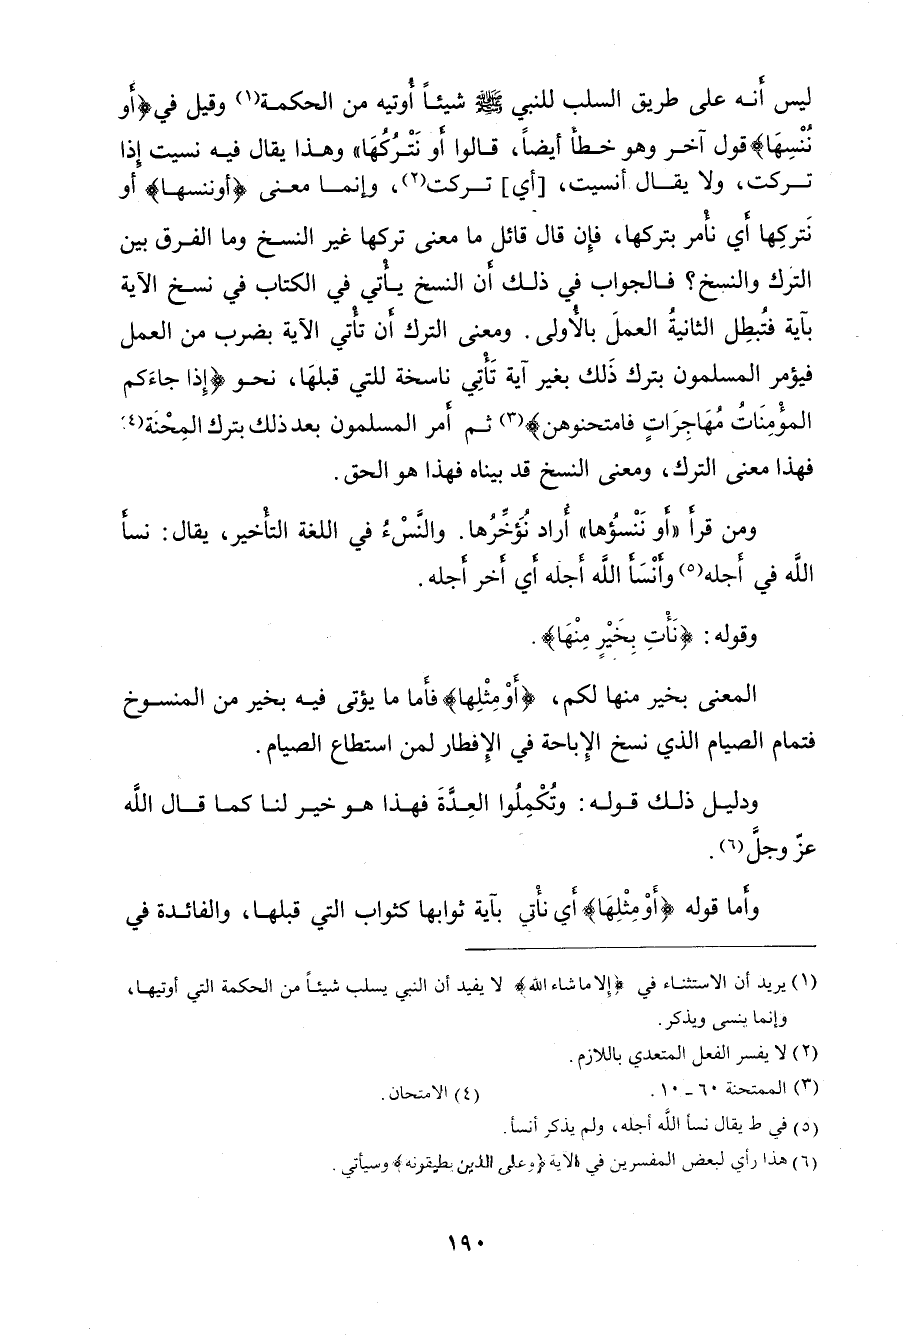 ليس أنه على طريق السلب للنبي ﷺ شيئاً أُوتيه من الحكمة(١) وقيل في ﴿أَو
نُنْسِهَا﴾ قول آخر وهو خطأ أيضاً، قالوا أَو نَتْرُكُهَا» وهذا يقال فيه نسيت إذا
تركت، ولا يقال أنسيت، [أي] تركت(٢)، وإنما معنى ﴿أوننسها﴾ أو
نَتركِها أَي نأْمر بتركها، فإن قال قائل ما معنى تركها غير النسخ وما الفرق بين
الترك والنسخ؟ فالجواب في ذلك أن النسخ يأْتي في الكتاب في نسخ الآية
بآية فتُبطِل الثانيةُ العملَ بالأُولى. ومعنى الترك أَن تأْتي الآية بضرب من العمل
فيؤمر المسلمون بترك ذَلك بغير آية تَأْتِي ناسخة للتي قبلهَا، نحو ﴿إِذا جاءَكم
المؤْمِنَاتُ مُهَاجِرَاتٍ فامتحنوهن﴾(٣) ثم أَمر المسلمون بعد ذلك بترك المِحْنَة(٤)
فهذا معنى الترك، ومعنى النسخ قد بيناه فهذا هو الحق.
ومن قرأَ «أَو نَنْسُؤها» أَراد نُؤَخِّرُها. والنَّسْءُ في اللغة التأْخير، يقال: نسأَ
اللَّه في أَجله(٥) وأَنْسَأَ اللَّه أَجله أَي أَخر أَجله.
وقوله: ﴿نَأْتِ بِخَيْرٍ مِنْهَا﴾.
المعنى بخير منها لكم، ﴿أَوْ مِثْلِها﴾ فأَما ما يؤتى فيه بخير من المنسوخ
فتمام الصيام الذي نسخ الإباحة في الإفطار لمن استطاع الصيام.
ودليل ذلك قوله: وتُكْمِلُوا العِدَّةَ فهذا هو خير لنا كما قال اللَّه
عزّ وجلَّ(٦).
وأَما قوله ﴿أَوْ مِثْلِهَا﴾ أَي نأْتي بآية ثوابها كثواب التي قبلها، والفائدة في
(١) يريد أن الاستثناء في ﴿إلا ما شاء الله﴾ لا يفيد أن النبي يسلب شيئاً من الحكمة التي أوتيها،
وإنما ينسى ويذكر.
(٢) لا يفسر الفعل المتعدي باللازم.
(٣) الممتحنة ٦٠ ـ ١٠. (٤) الامتحان.
(٥) في ط يقال نسأ اللَّه أجله، ولم يذكر أنسأ.
(٦) هذا رأي لبعض المفسرين في الآية ﴿وعلى الذين يطيقونه﴾ وسيأتي.
١٩٠